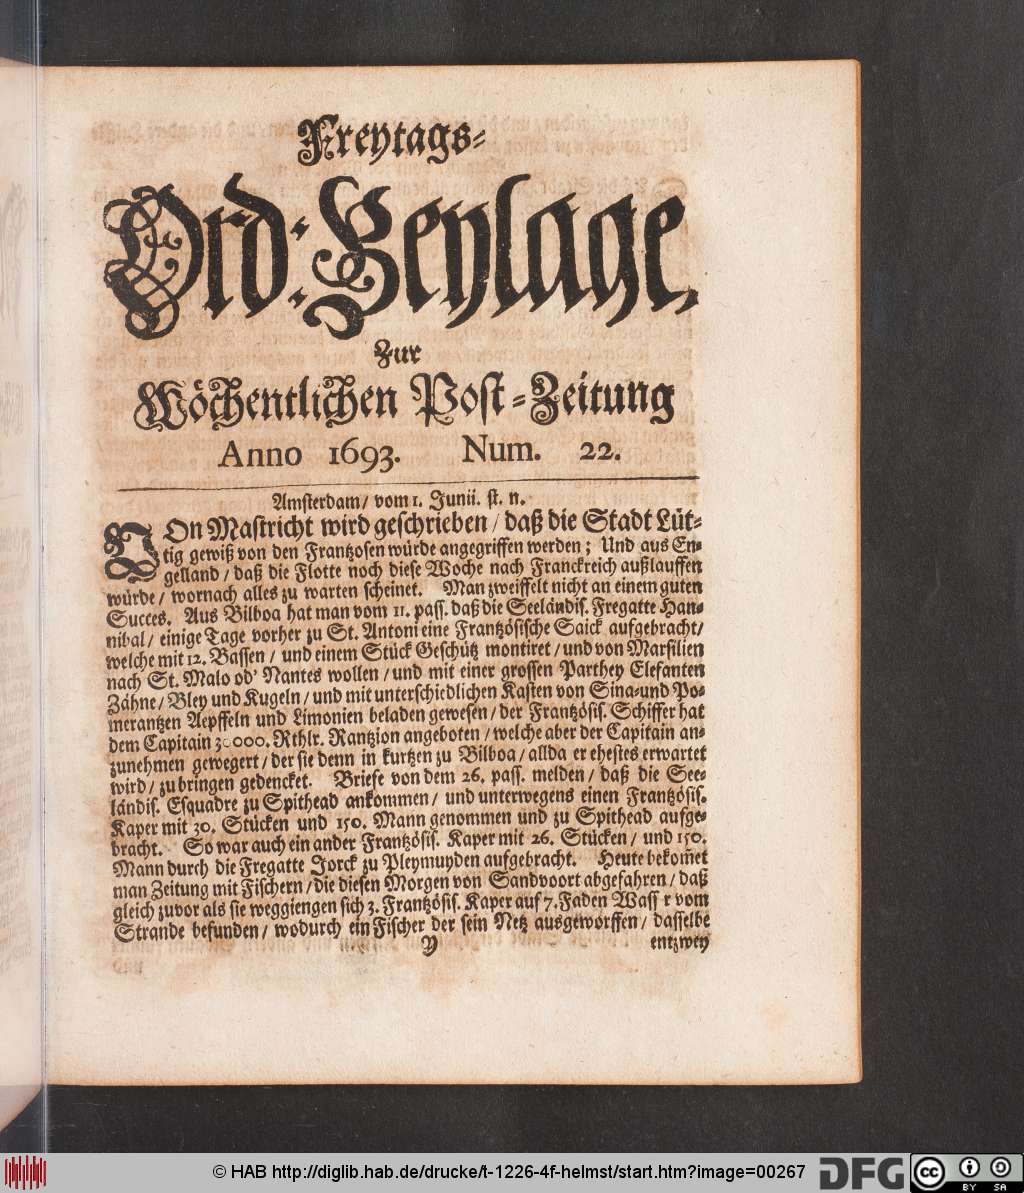 Freytags-
Ord: Beylage,
Zur
Wöchentlichen Post-Zeitung
Anno 1693. Num. 22.
Amsterdam/ vom 1. Junii. st. n.
VOn Mastricht wird geschrieben/ daß die Stadt Lüt-
tig gewiß von den Frantzosen würde angegriffen werden; Und aus En-
gelland/ daß die Flotte noch diese Woche nach Franckreich außlauffen
würde/ wornach alles zu warten scheinet. Man zweiffelt nicht an einem guten
Succes. Aus Bilboa hat man vom 11. pass. daß die Seeländis. Fregatte Han-
nibal/ einige Tage vorher zu St. Antoni eine Frantzösische Saick aufgebracht/
welche mit 12. Bassen/ und einem Stück Geschütz montiret/ und von Marsilien
nach St. Malo od' Nantes wollen/ und mit einer grossen Parthey Elefanten
Zähne/ Bley und Kugeln/ und mit unterschiedlichen Kasten von Sina-und Po-
merantzen Aepffeln und Limonien beladen gewesen/ der Frantzösis. Schiffer hat
dem Capitain 30000. Rthlr. Rantzion angeboten/ welche aber der Capitain an-
zunehmen gewegert/ der sie denn in kurtzen zu Bilboa/ allda er ehestes erwartet
wird/ zu bringen gedencket. Briefe von dem 26. pass. melden/ daß die See-
ländis. Esquadre zu Spithead ankommen/ und unterwegens einen Frantzösis.
Kaper mit 30. Stücken und 150. Mann genommen und zu Spithead aufge-
bracht. So war auch ein ander Frantzösis. Kaper mit 26. Stücken/ und 150.
Mann durch die Fregatte Jorck zu Pleymuyden aufgebracht. Heute bekom̃et
man Zeitung mit Fischern/ die diesen Morgen von Sandvoort abgefahren/ daß
gleich zuvor als sie weggiengen sich 3. Frantzösis. Kaper auf 7. Faden Wass r vom
Strande befunden/ wodurch ein Fischer der sein Netz ausgeworffen/ dasselbe
Y entzwey
© HAB http://diglib.hab.de/drucke/t-1226-4f-helmst/start.htm?image=00267
DFG
cc BY SA